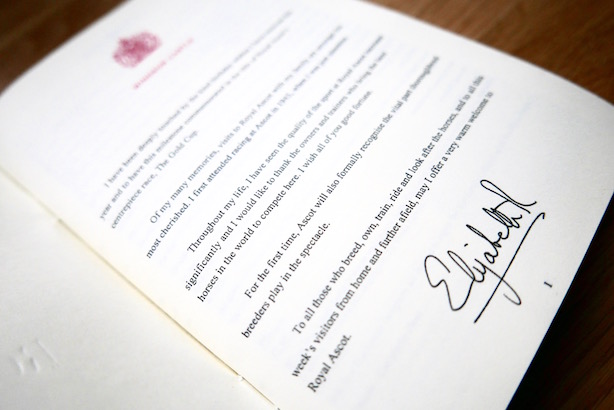 WINDSOR CASTLE
I have been deeply touched by the
year and to have this milestone commemorated in the title of Royal Ascot's
centrepiece race, The Gold Cup.
Of my many memories, visits to Royal Ascot with my family are amongst the
most cherished. I first attended racing at Ascot in 1945, when I was just nineteen.
Throughout my life, I have seen the quality of the sport at Royal Ascot increase
significantly and I would like to thank the owners and trainers who bring the best
horses in the world to compete here. I wish all of you good fortune.
For the first time, Ascot will also formally recognise the vital part thoroughbred
breeders play in the spectacle.
To all those who breed, own, train, ride and look after the horses, and to all this
week's visitors from home and further afield, may I offer a very warm welcome to
Royal Ascot.
Elizabeth R
1